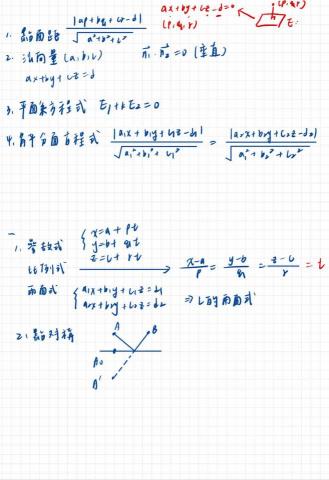 1. 點面距 |ap+bq+cr-d| / √(a²+b²+c²)
ax+by+cz-d=0
(p,q,r)
(p,q,r)
E
2. 法向量 (a,b,c) n₁·n₂=0 (垂直)
ax+by+cz=d
3. 平面系方程式 E₁+kE₂=0
4. 角平分面方程式 |a₁x+b₁y+c₁z-d₁| / √(a₁²+b₁²+c₁²) = |a₂x+b₂y+c₂z-d₂| / √(a₂²+b₂²+c₂²)
一
1. 參數式 { x=a+pt
y=b+qt
z=c+rt
比例式 (x-a)/p = (y-b)/q = (z-c)/r = t
兩面式 { a₁x+b₁y+c₁z=d₁
a₂x+b₂y+c₂z=d₂ ⇒ L的兩面式
2. 點對稱
A B
A₀
A'